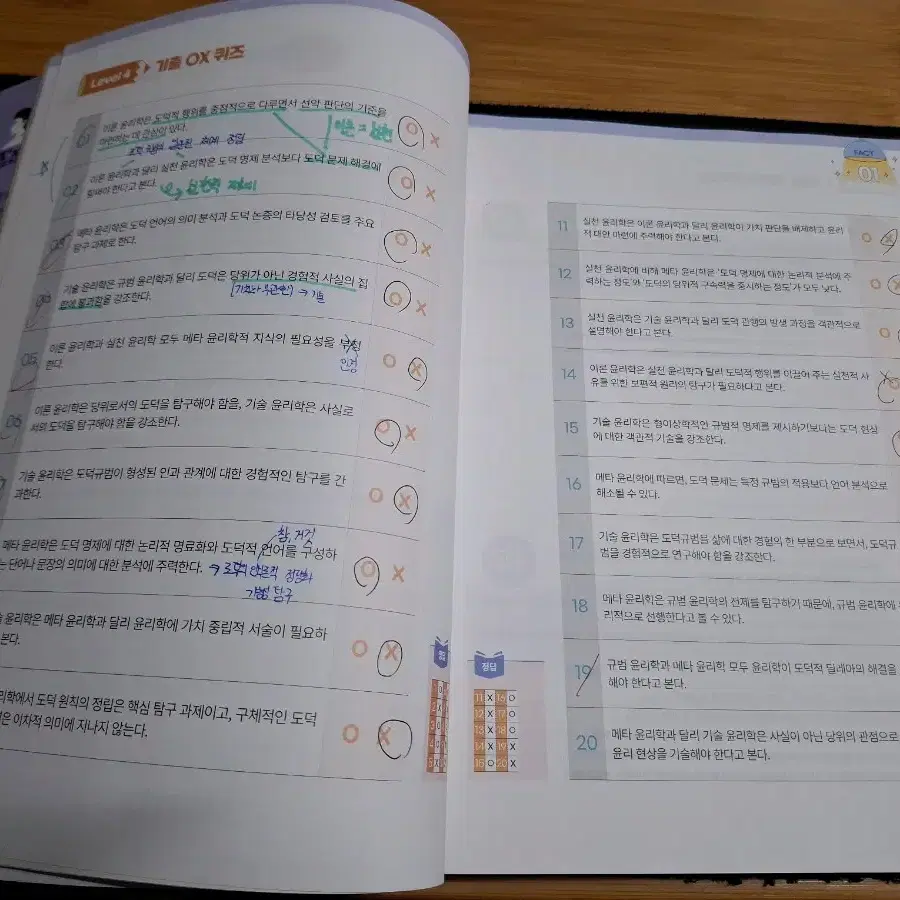 Level 4 기출 OX 퀴즈
01 이론 윤리학은 도덕적 행위를 중점적으로 다루면서 선악 판단의 기준을
마련하는 데 관심이 있다. O X
02 이론 윤리학과 달리 실천 윤리학은 도덕 명제 분석보다 도덕 문제 해결에
힘써야 한다고 본다. O X
03 메타 윤리학은 도덕 언어의 의미 분석과 도덕 논증의 타당성 검토를 주요
탐구 과제로 한다. O X
04 기술 윤리학은 규범 윤리학과 달리 도덕은 당위가 아닌 경험적 사실의 집
합에 불과함을 강조한다. O X
→ 기술
05 이론 윤리학과 실천 윤리학 모두 메타 윤리학적 지식의 필요성을 부정
한다. O X
인정
06 이론 윤리학은 당위로서의 도덕을 탐구해야 함을, 기술 윤리학은 사실로
서의 도덕을 탐구해야 함을 강조한다. O X
기술 윤리학은 도덕규범이 형성된 인과 관계에 대한 경험적인 탐구를 간
과한다. O X
참, 거짓
메타 윤리학은 도덕 명제에 대한 논리적 명료화와 도덕적 언어를 구성하
는 단어나 문장의 의미에 대한 분석에 주력한다. O X
탐구
윤리학은 메타 윤리학과 달리 윤리학에 가치 중립적 서술이 필요하
본다. O X
리학에서 도덕 원칙의 정립은 핵심 탐구 과제이고, 구체적인 도덕
은 이차적 의미에 지나지 않는다. O X
FACT
01
11 실천 윤리학은 이론 윤리학과 달리 윤리학이 가치 판단을 배제하고 윤리
적 대안 마련에 주력해야 한다고 본다. O
12 실천 윤리학에 비해 메타 윤리학은 '도덕 명제에 대한 논리적 분석에 주
력하는 정도'와 '도덕의 당위적 구속력을 중시하는 정도'가 모두 낮다. O
13 실천 윤리학은 기술 윤리학과 달리 도덕 관행의 발생 과정을 객관적으로
설명해야 한다고 본다. O
14 이론 윤리학은 실천 윤리학과 달리 도덕적 행위를 이끌어 주는 실천적 사
유를 위한 보편적 원리의 탐구가 필요하다고 본다.
15 기술 윤리학은 형이상학적인 규범적 명제를 제시하기보다는 도덕 현상
에 대한 객관적 기술을 강조한다.
16 메타 윤리학에 따르면, 도덕 문제는 특정 규범의 적용보다 언어 분석으로
해소될 수 있다.
17 기술 윤리학은 도덕규범을 삶에 대한 경험의 한 부분으로 보면서, 도덕규
범을 경험적으로 연구해야 함을 강조한다.
18 메타 윤리학은 규범 윤리학의 전제를 탐구하기 때문에, 규범 윤리학에
리적으로 선행한다고 볼 수 있다.
19 규범 윤리학과 메타 윤리학 모두 윤리학이 도덕적 딜레마의 해결을
해야 한다고 본다.
20 메타 윤리학과 달리 기술 윤리학은 사실이 아닌 당위의 관점으로
윤리 현상을 기술해야 한다고 본다.
정답
11 X 16 O
12 X 17 O
13 X 18 O
14 X 19 X
15 O 20 X